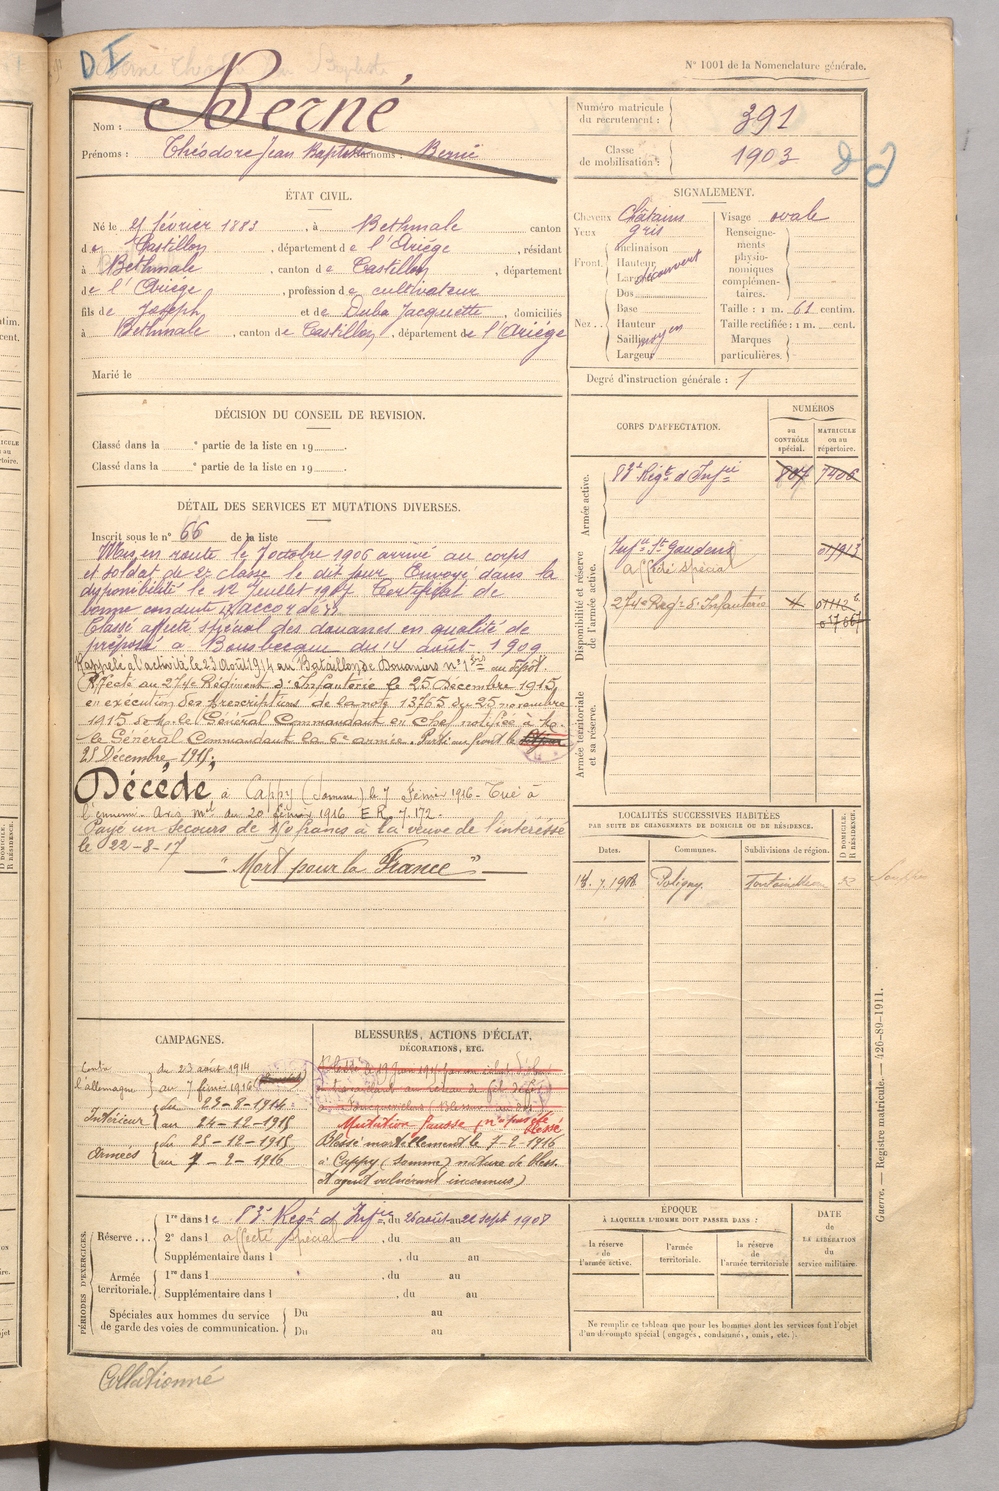 D I
N° 1001 de la Nomenclature générale.
Nom : Berné
Prénoms : Théodore Jean Baptiste Surnoms : Berné
Numéro matricule du recrutement : 391
Classe de mobilisation : 1903
ÉTAT CIVIL.
Né le 21 février 1883, à Bethmale canton
de Castillon, département de l'Ariége, résidant
à Bethmale, canton de Castillon, département
de l'Ariége, profession de cultivateur
fils de Joseph et de Duba Jacquette, domiciliés
à Bethmale, canton de Castillon, département de l'Ariége
Marié le
SIGNALEMENT.
Cheveux Châtains
Yeux gris
Front. Inclinaison
Hauteur
Largeur découvert
Nez... Dos
Base
Hauteur
Saillie moyen
Largeur
Visage ovale
Renseigne-
ments
physio-
nomiques
complémen-
taires.
Taille : 1 m. 61 centim.
Taille rectifiée : 1 m. cent.
Marques
particulières.
Degré d'instruction générale : 1
DÉCISION DU CONSEIL DE REVISION.
Classé dans la e partie de la liste en 19 .
Classé dans la e partie de la liste en 19 .
DÉTAIL DES SERVICES ET MUTATIONS DIVERSES.
Inscrit sous le n° 66 de la liste
Mis en route le 7 octobre 1906 arrivé au corps
et soldat de 2e classe le dit jour Envoyé dans la
disponibilité le 12 Juillet 1907 Certificat de
bonne conduite accordé
Classé affecté spécial des douanes en qualité de
préposé à Bousbecque du 14 août 1909
Rappelé à l'activité le 23 Août 1914 au Bataillon de Douaniers n° 1 bis au dépôt.
Affecté au 274e Régiment d'Infanterie le 25 Décembre 1915
en exécution des prescriptions de la note 13765 du 25 novembre
1915 de M. le Général Commandant en Chef notifiée à M.
le Général Commandant la 6e armée. Parti au front le
25 Décembre 1915.
Décédé à Cappy (Somme) le 7 Février 1916 - Tué à
l'ennemi. Avis mel du 20 février 1916 E.R. 7.172.
Payé un secours de 150 francs à la veuve de l'intéressé
le 22-8-17
" Mort pour la France "
CORPS D'AFFECTATION.
NUMÉROS
au CONTRÔLE spécial.
MATRICULE ou au répertoire.
Armée active.
83e Régt d'Infie 807 7406
Disponibilité et réserve de l'armée active.
Infie St Gaudens 01913
affecté spécial
274e Régt d'Infanterie
Armée territoriale et sa réserve.
LOCALITÉS SUCCESSIVES HABITÉES
PAR SUITE DE CHANGEMENTS DE DOMICILE OU DE RÉSIDENCE.
Dates.
Communes.
Subdivisions de région.
D DOMICILE. R RÉSIDENCE.
14.7.1908 Poligny Fontainebleau R
CAMPAGNES.
Contre l'allemagne du 23 août 1914
au 7 février 1916
Intérieur du 23-8-1914
au 24-12-1915
Armées du 25-12-1915
au 7-2-1916
BLESSURES, ACTIONS D'ÉCLAT,
DÉCORATIONS, ETC.
Mutation fausse (n'a pas été blessé
Blessé mortellement le 7-2-1916
à Cappy (Somme) nature de bless.
et agent vulnérant inconnus)
PÉRIODES D'EXERCICES.
Réserve... 1re dans le 83e Régt d'Infie, du 26 août au 22 sept 1908
2e dans l affecté spécial, du au
Supplémentaire dans l , du au
Armée territoriale. 1re dans l , du au
Supplémentaire dans l , du au
Spéciales aux hommes du service de garde des voies de communication. Du au
Du au
ÉPOQUE
À LAQUELLE L'HOMME DOIT PASSER DANS :
la réserve de l'armée active.
l'armée territoriale.
la réserve de l'armée territoriale
DATE de LA LIBÉRATION du service militaire.
Ne remplir ce tableau que pour les hommes dont les services font l'objet
d'un décompte spécial (engagés, condamnés, omis, etc.).
Guerre. — Registre matricule. — 426-89-1911.
Collationné